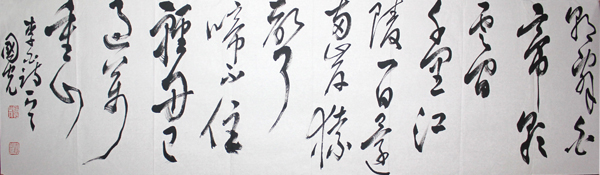 朝辭白
帝彩
雲間
千里江
陵一日還
兩岸猿
聲
啼不住
輕舟已
過萬
重山
李白詩
國